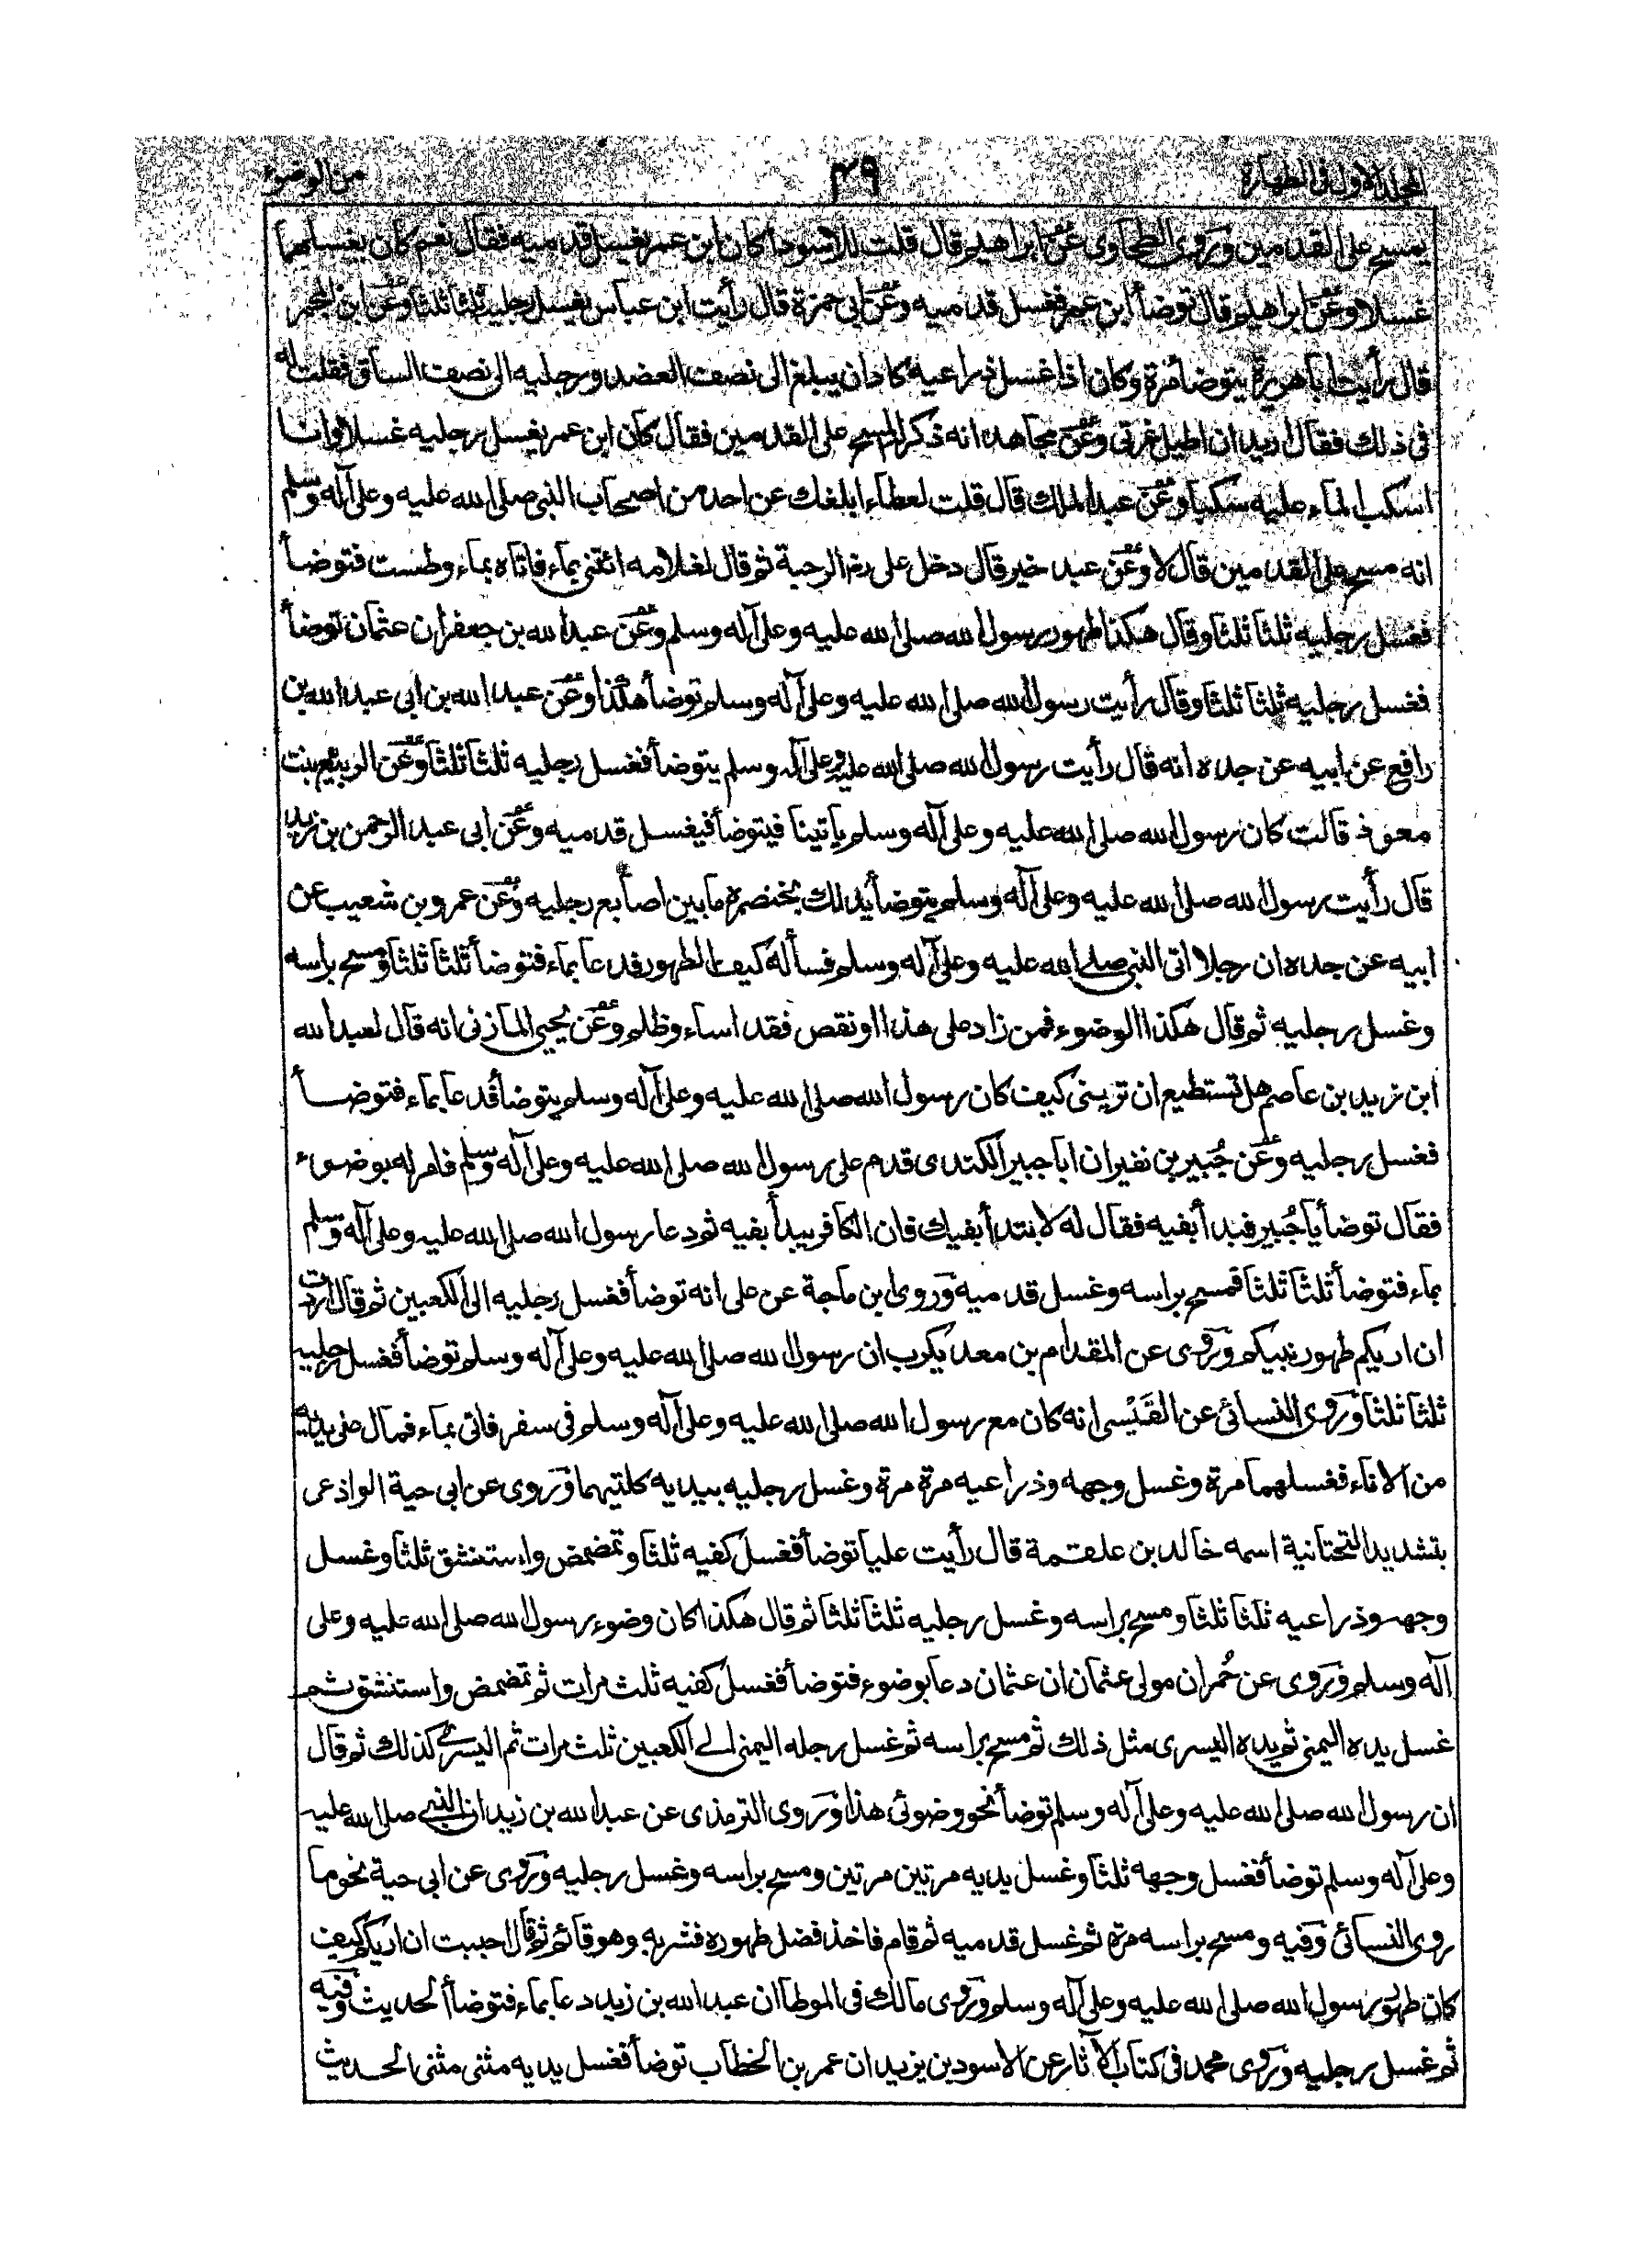 المجلد الاول فى الطهارة
٤٩
من الوضوء
يمسح على القدمين وروى الطحاوى عن ابراهيم قال قلت للاسود اكان ابن عمر يغسل قدميه فقال نعم كان يغسلهما
غسلا وعن ابراهيم قال توضأ ابن عمر فغسل قدميه وعن ابى حمزة قال رأيت ابن عباس يغسل رجليه ثلثا ثلثا وعن ابن المجمر
قال رأيت ابا هريرة يتوضأ مرة وكان اذا غسل ذراعيه كاد ان يبلغ الى نصف العضد ورجليه الى نصف الساق فقلت له
فى ذلك فقال اريد ان اطيل غرتى وعن مجاهد انه ذكر المسح على القدمين فقال كان ابن عمر يغسل رجليه غسلا وانا
اسكب الماء عليه سكبا وعن عبد الملك قال قلت لعطاء ابلغك عن احد من اصحاب النبى صلى الله عليه وعلى آله وسلم
انه مسح على القدمين قال لا وعن عبد خير قال دخل على رض الرحبة ثم قال لغلامه ائتنى بماء فاتاه بماء وطست فتوضأ
فغسل رجليه ثلثا ثلثا وقال هكذا طهور رسول الله صلى الله عليه وعلى آله وسلم وعن عبد الله بن جعفر ان عثمان توضأ
فغسل رجليه ثلثا ثلثا وقال رأيت رسول الله صلى الله عليه وعلى آله وسلم توضأ هكذا وعن عبد الله بن ابى عبد الله بن
رافع عن ابيه عن جده انه قال رأيت رسول الله صلى الله عليه وعلى آله وسلم يتوضأ فغسل رجليه ثلثا ثلثا وعن الربيع بنت
معوذ قالت كان رسول الله صلى الله عليه وعلى آله وسلم يأتينا فيتوضأ فيغسل قدميه وعن ابى عبد الرحمن بن زيد
قال رأيت رسول الله صلى الله عليه وعلى آله وسلم يتوضأ يدلك بخنصره ما بين اصابع رجليه وعن عمرو بن شعيب عن
ابيه عن جده ان رجلا اتى النبى صلى الله عليه وعلى آله وسلم فسأله كيف الطهور فدعا بماء فتوضأ ثلثا ثلثا ومسح براسه
وغسل رجليه ثم قال هكذا الوضوء فمن زاد على هذا او نقص فقد اساء وظلم وعن يحيى المازنى انه قال لعبد الله
ابن زيد بن عاصم هل تستطيع ان ترينى كيف كان رسول الله صلى الله عليه وعلى آله وسلم يتوضأ فدعا بماء فتوضأ
فغسل رجليه وعن جُبير بن نفير ان ابا جبير الكندى قدم على رسول الله صلى الله عليه وعلى آله وسلم فامر له بوضوء
فقال توضأ يا جُبير فبدأ بفيه فقال له لا تبتدأ بفيك فان الكافر يبدأ بفيه ثم دعا رسول الله صلى الله عليه وعلى آله وسلم
بماء فتوضأ ثلثا ثلثا فمسح براسه وغسل قدميه وروى ابن ماجة عن على انه توضأ فغسل رجليه الى الكعبين ثم قال اردت
ان اريكم طهور نبيكم وروى عن المقدام بن معد يكرب ان رسول الله صلى الله عليه وعلى آله وسلم توضأ فغسل رجليه
ثلثا ثلثا وروى النسائى عن القَيْسى انه كان مع رسول الله صلى الله عليه وعلى آله وسلم فى سفر فاتى بماء فمال على يديه
من الاناء فغسلهما مرة وغسل وجهه وذراعيه مرة مرة وغسل رجليه بيديه كلتيهما وروى عن ابى حية الواذعى
بتشديد التحتانية اسمه خالد بن علقمة قال رأيت عليا توضأ فغسل كفيه ثلثا وتمضمض واستنشق ثلثا وغسل
وجهه وذراعيه ثلثا ثلثا ومسح براسه وغسل رجليه ثلثا ثلثا ثم قال هكذا كان وضوء رسول الله صلى الله عليه وعلى
آله وسلم وروى عن حُمران مولى عثمان ان عثمان دعا بوضوء فتوضأ فغسل كفيه ثلث مرات ثم تمضمض واستنشق ثم
غسل يده اليمنى ثم يده اليسرى مثل ذلك ثم مسح براسه ثم غسل رجله اليمنى الى الكعبين ثلث مرات ثم اليسرى كذلك ثم قال
ان رسول الله صلى الله عليه وعلى آله وسلم توضأ نحو وضوئى هذا وروى الترمذى عن عبد الله بن زيد ان النبى صلى الله عليه
وعلى آله وسلم توضأ فغسل وجهه ثلثا وغسل يديه مرتين مرتين ومسح براسه وغسل رجليه وروى عن ابى حية نحو ما
روى النسائى وفيه ومسح براسه مرة ثم غسل قدميه ثم قام فاخذ فضل طهوره فشربه وهو قائم ثم قال احببت ان اريكم كيف
كان طهور رسول الله صلى الله عليه وعلى آله وسلم وروى مالك فى الموطأ ان عبد الله بن زيد دعا بماء فتوضأ الحديث وفيه
ثم غسل رجليه وروى محمد فى كتاب الآثار عن الاسود بن يزيد ان عمر بن الخطاب توضأ فغسل يديه مثنى مثنى الحديث